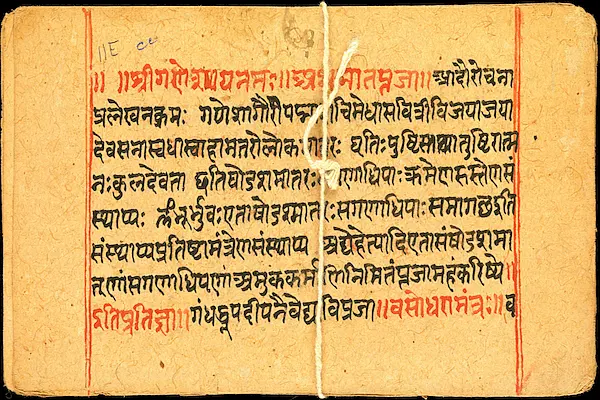 ॥E cc
॥ ॥श्रीगणेशायनमः॥अथमातृपूजा॥आदौरोचना
प्रलेखनक्रमः गणेशगौरीपद्माशचीमेधासवित्रीविजयाजया
देवसेनास्वधास्वाहामातरोलोकमातरः धृतिःपुष्टिस्तथातुष्टिरात्म
नःकुलदेवता इतिषोडशमातरःसगणाधिपाःक्रमेणहस्तेनसं
स्थाप्यः ॐभूर्भुवःएताषोडशमातरःसगणाधिपाःसमागछंत्विति
संस्थाप्यप्रतिष्ठामंत्रेणसंस्थाप्य अद्येहेत्यादिएतासंषोडशमा
तृणांसगणाधिपाणांअमुककर्मणिनिमितंपूजामहंकरिष्ये॥
इतिप्रतिज्ञा॥।गंधद्धूपदीपनैवेद्यविपूजा॥वसोधरामंत्रः॥व